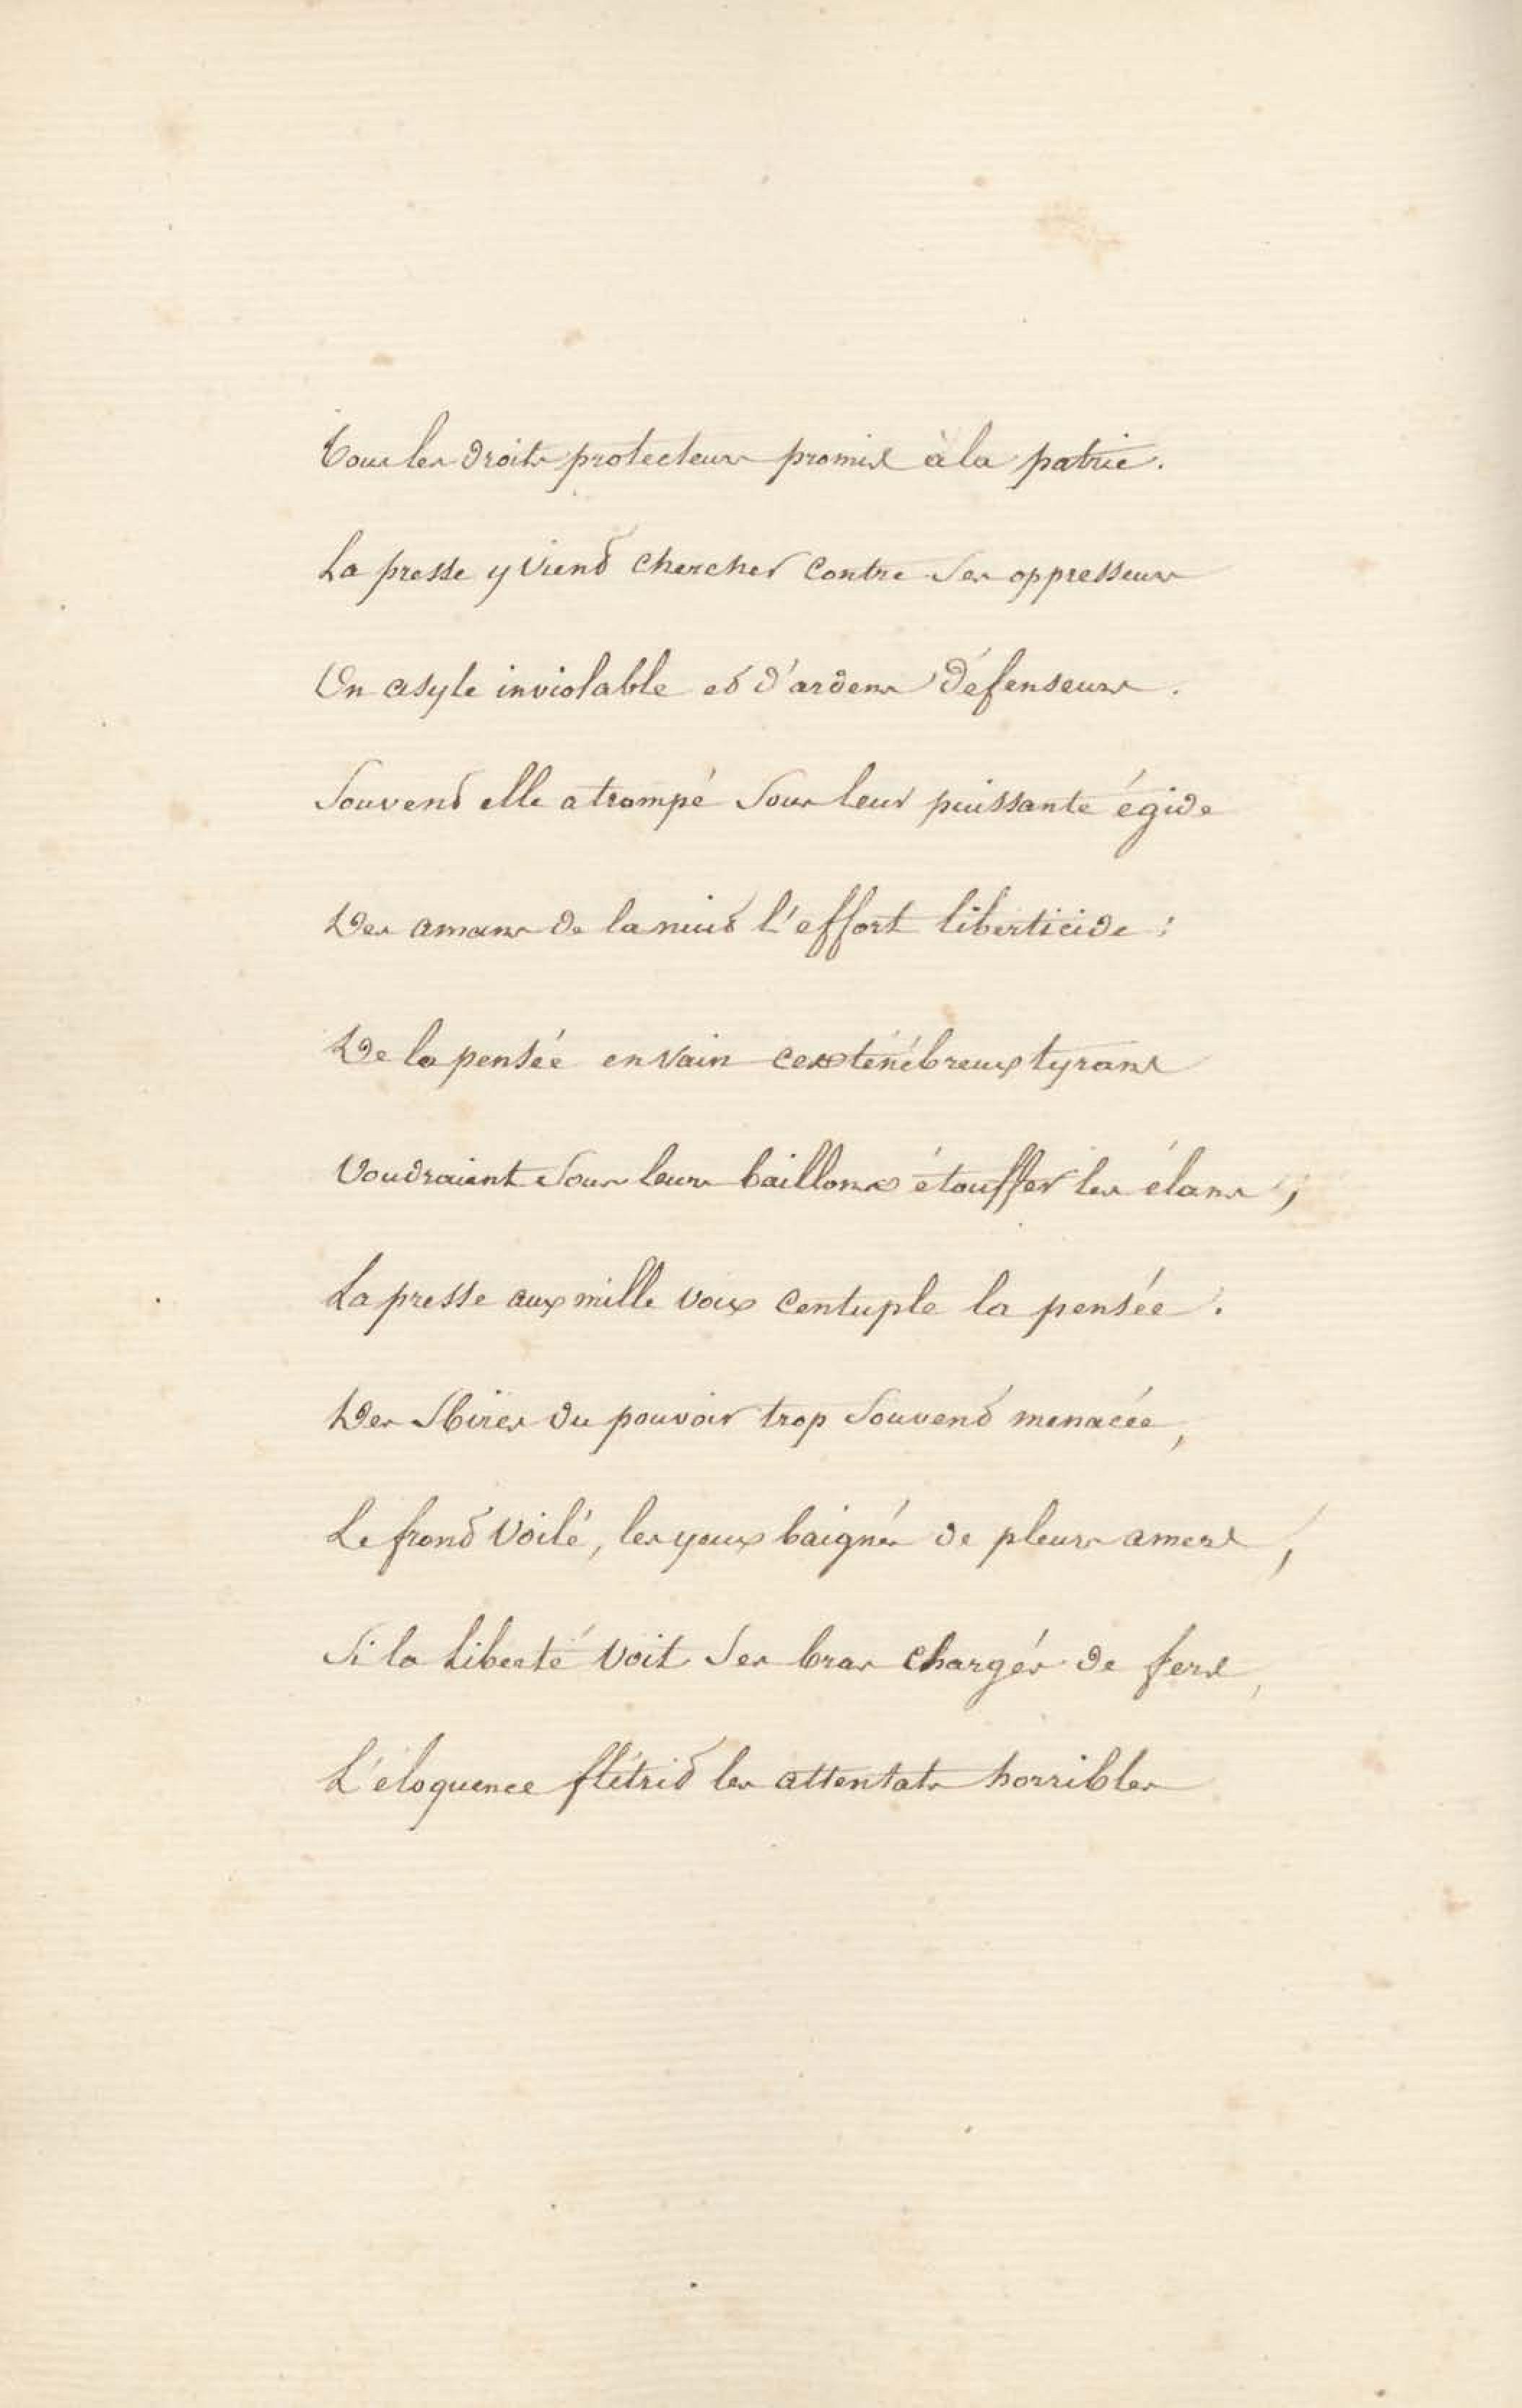 Tous les droits protecteurs promis à la patrie.
La presse y vient chercher contre ses oppresseurs
Un asyle inviolable et d'ardens défenseurs.
Souvent elle a trompé sous leur puissante égide
Des amans de la nuit l'effort liberticide :
De la pensée en vain ces ténébreux tyrans
Voudraient sous leurs baillons étouffer les élans,
La presse aux mille voix centuple la pensée.
Des sbires du pouvoir trop souvent menacée,
Le front voilé, les yeux baignés de pleurs amers,
Si la liberté voit ses bras chargés de fers,
L'éloquence flétrit les attentats horribles